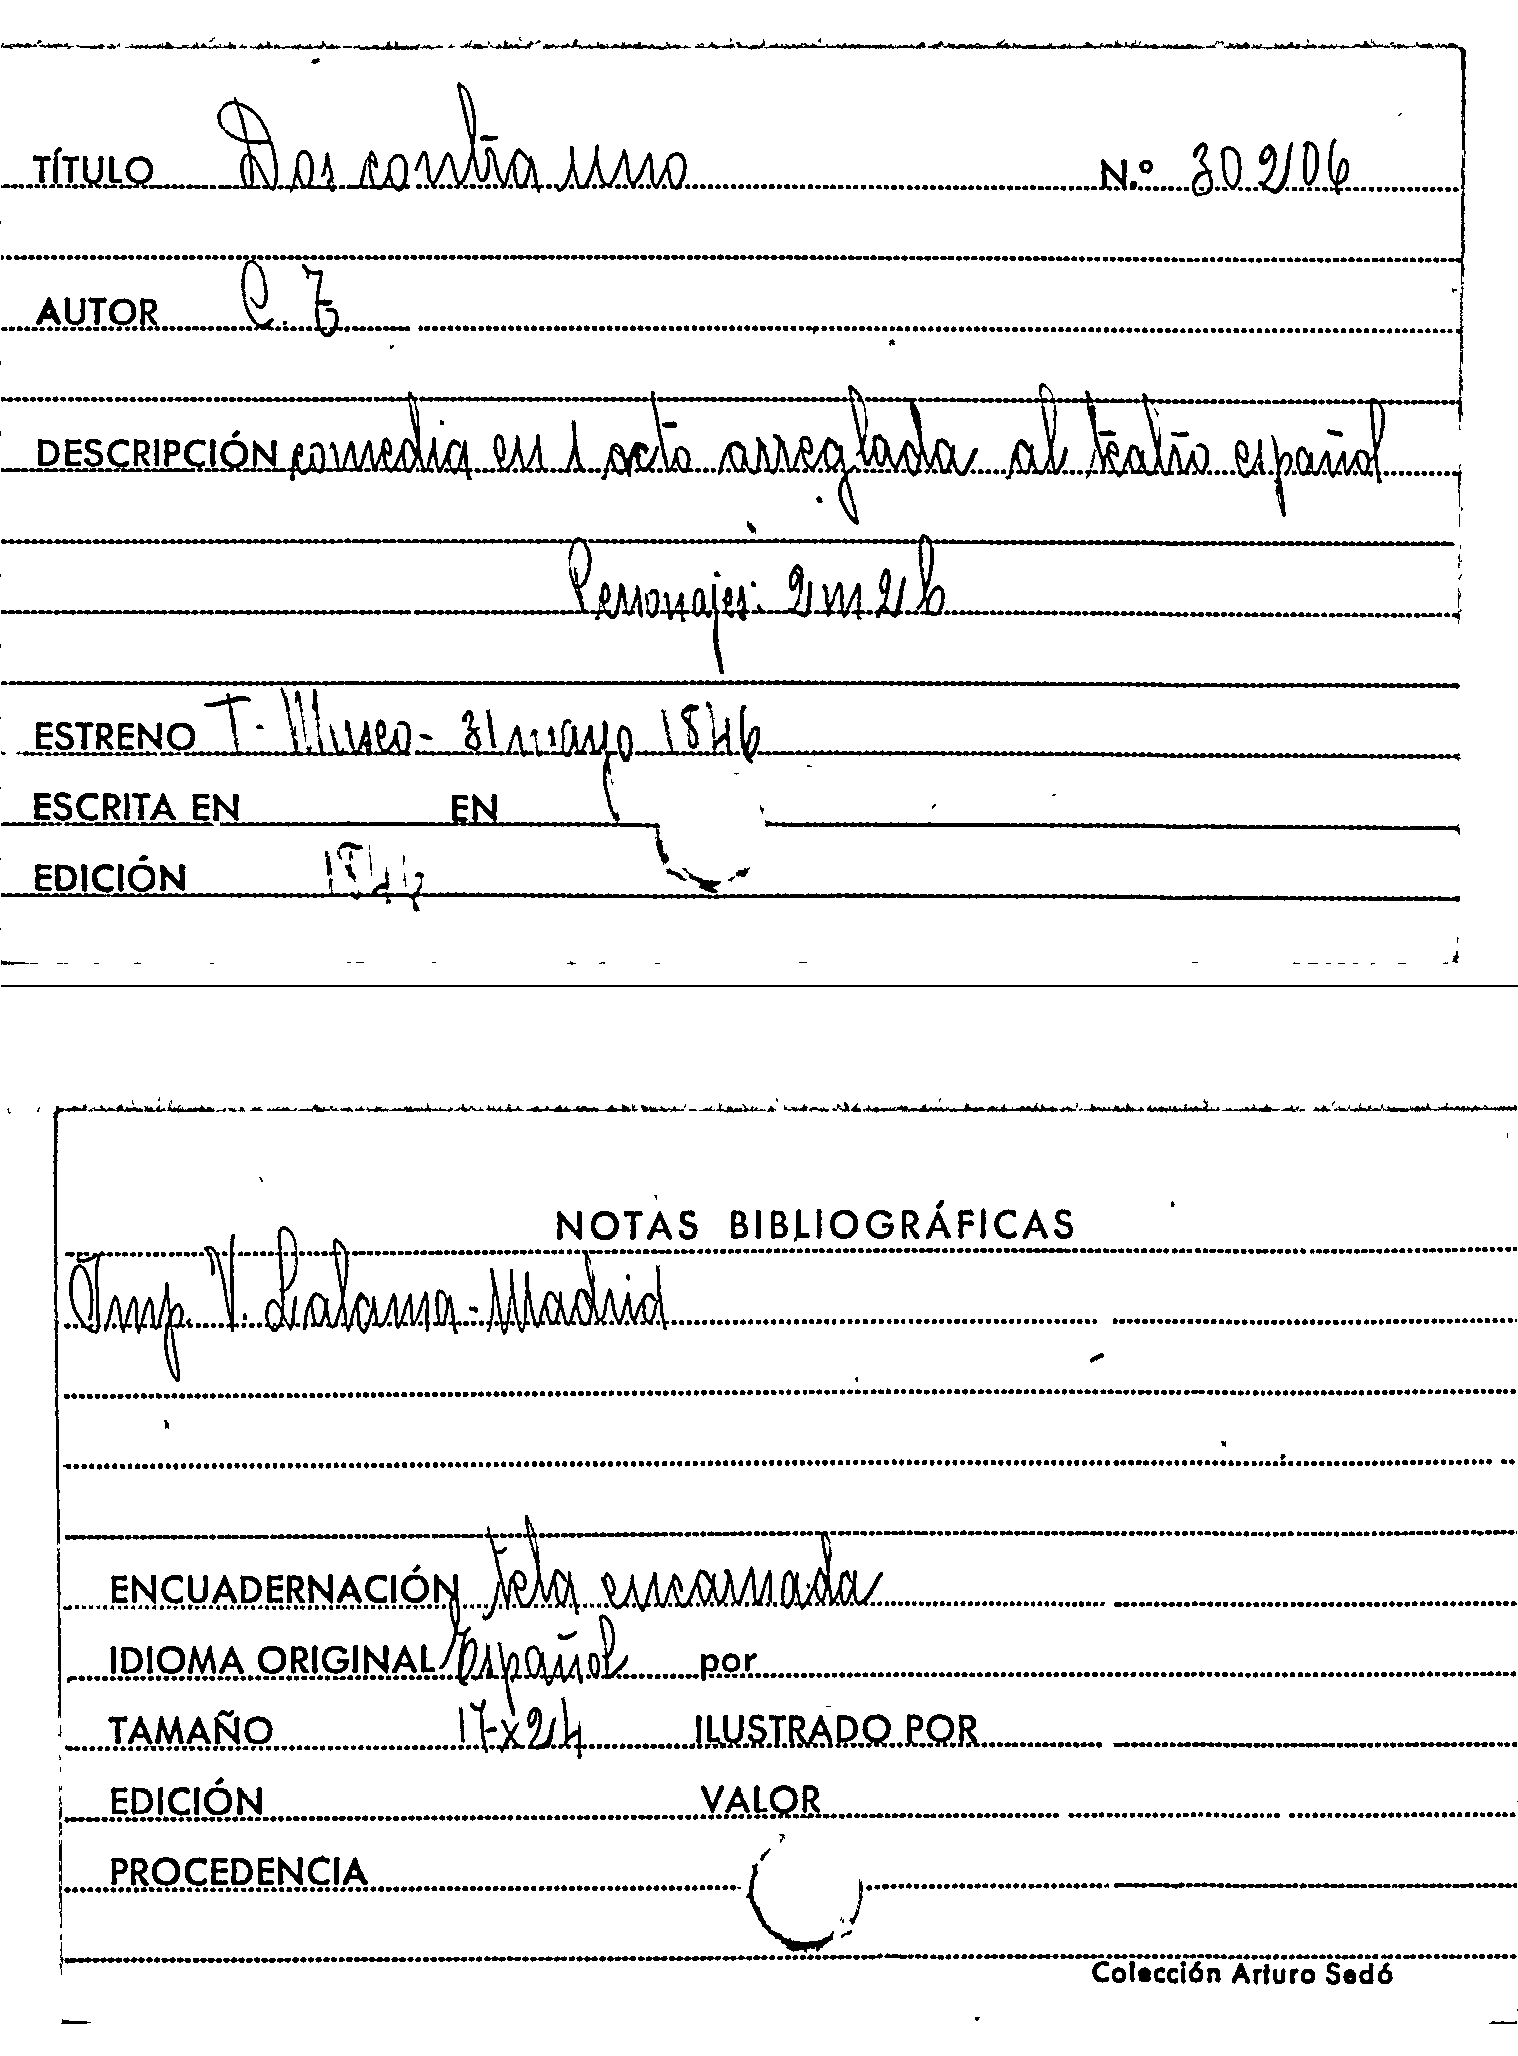 TÍTULO Dos contra uno N.º 30206
AUTOR C. Z
DESCRIPCIÓN comedia en 1 acto arreglada al teatro español
Personajes: 2 m 2 h
ESTRENO T. Museo - 31 mayo 1846
ESCRITA EN EN
EDICIÓN
NOTAS BIBLIOGRÁFICAS
Imp. V. Lalama - Madrid
ENCUADERNACIÓN tela encarnada
IDIOMA ORIGINAL Español por
TAMAÑO 17 x 24 ILUSTRADO POR
EDICIÓN VALOR
PROCEDENCIA
Colección Arturo Sedó